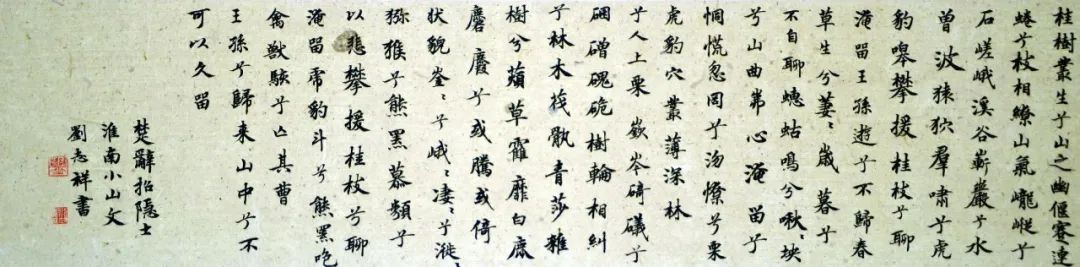 桂樹叢生兮山之幽偃蹇連
蜷兮枝相繚山氣巃嵸兮
石嵯峨溪谷嶄巖兮水
曾波猿狖羣嘯兮虎
豹嗥攀援桂枝兮聊
淹留王孫遊兮不歸春
草生兮萋〻歲暮兮
不自聊蟪蛄鳴兮啾〻坱
兮山曲岪心淹留兮
恫慌忽罔兮沕憭兮栗
虎豹穴叢薄深林
兮人上栗嶔岑碕礒兮
碅磳磈硊樹輪相糾
兮林木茷骫青莎雜
樹兮薠草靃靡白鹿
麏麚兮或騰或倚
狀貌崟〻兮峨〻凄〻兮漇〻
獼猴兮熊羆慕類兮
以悲攀援桂枝兮聊
淹留虎豹斗兮熊羆咆
禽獸駭兮亡其曹
王孫兮歸来山中兮不
可以久留
楚辭招隐士
淮南小山文
劉志祥書